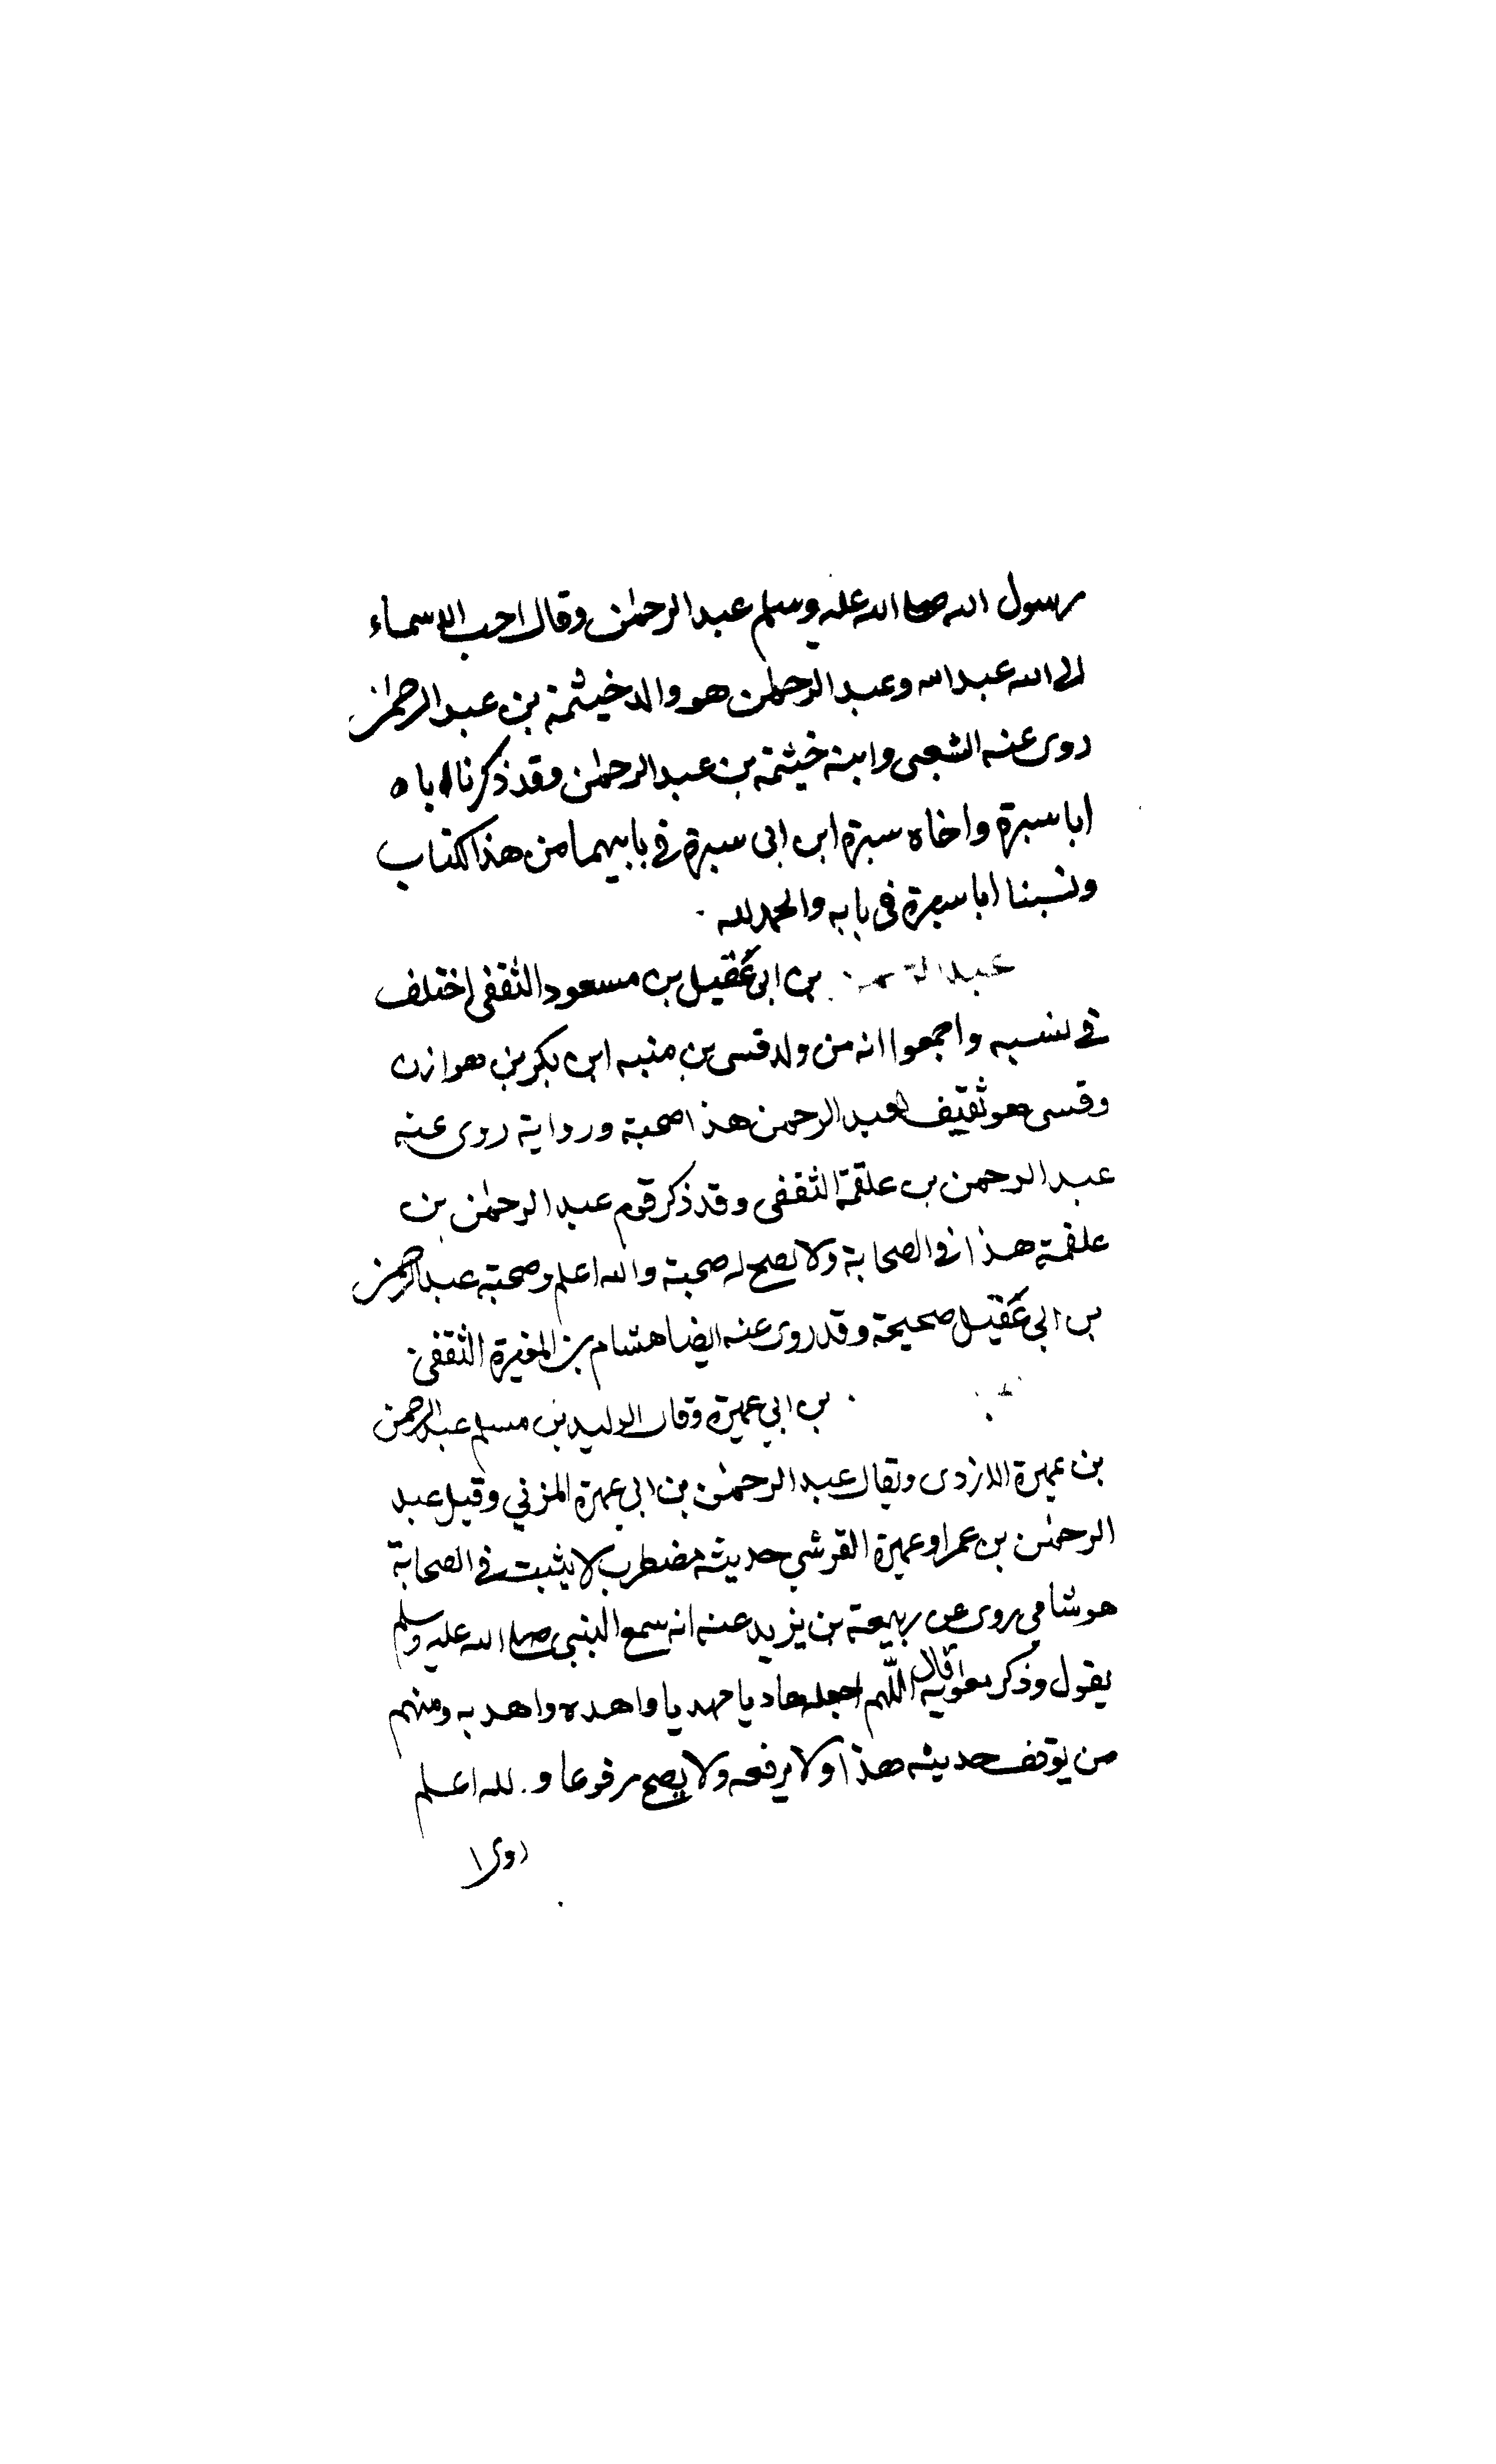 رسول الله صلى الله عليه وسلم عبد الرحمٰن وقال احب الاسماء
الى الله عبد الله وعبد الرحمٰن هو والد خيثمة بن عبد الرحمٰن
روى عنه الشعبى وابنه خيثمة بن عبد الرحمٰن وقد ذكرنا اباه
ابا سبرة واخاه سبرة ابن ابى سبرة في بابيهما من هذا الكتاب
ونسبنا ابا سبرة فى بابه والحمد لله
عبد الرحمن بن ابى عَقيل بن مسعود الثقفى اختلف
في نسبه واجمعوا انه من ولد قسى بن منبه ابن بكر بن هوازن
وقسى هو ثقيف لعبد الرحمن هذا صحبة ورواية روى عنه
عبد الرحمن بن علقمة الثقفى وقد ذكر قوم عبد الرحمٰن بن
علقمة هذا في الصحابة ولا يصح له صحبة والله اعلم وصحبة عبد الرحمن
بن ابى عَقيل صحيحة وقد روى عنه ايضا هشام بن المغيرة الثقفى
بن ابي عميرة وقال الوليد بن مسلم عبد الرحمن
بن عميرة الازدى ويقال عبد الرحمٰن بن ابي عميرة المزني وقيل عبد
الرحمٰن بن عمر او عميرة القرشي حديثه مضطرب لا يثبت في الصحابة
هو شامي روى عن ربيعة بن يزيد عنه انه سمع النبى صلى الله عليه وسلم
يقول وذكر معوية قال اللّهم اجعله هاديا مهديا واهده واهد به ومنهم
من يوقف حديثه هذا ولا يرفعه ولا يصح مرفوعا والله اعلم
روى